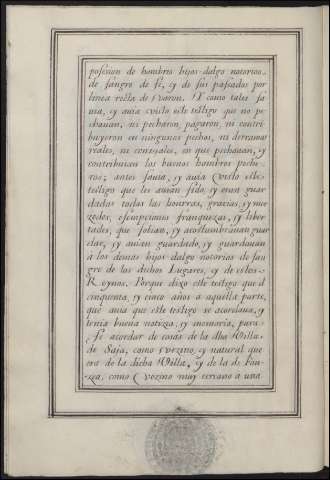 posesion de hombres hijos-dalgo notorios
de sangre de si, y de sus passados por
linea recta de varon. Y como tales sa-
uia, y auia visto este testigo que no pe-
chauan, ni pecharon, pagaron, ni contri-
buyeron en ningunos pechos, ni derramas
reales, ni conzejales, en que pechauan, y
contribuian los buenos hombres peche-
ros; antes sauia, y auia visto este
testigo que les auian sido, y eran guar-
dadas todas las honrras, gracias, y mer-
zedes, esempciones franquezas, y liber-
tades, que solian, y acostumbrauan guar-
dar, y auian guardado, y guardauan
a los demas hijos dalgo notorios de san-
gre de los dichos Lugares, y de estos
Reynos. Porque dixo este testigo que de
cinquenta, y cinco años a aquella parte,
que auia que este testigo se acordaua, y
tenia buena noteza, y memoria, para
se acordar de cosas de la dha Villa
de Saja, como vezino, y natural que
era de la dicha Villa, y de la de
como vozino muy cercano a una